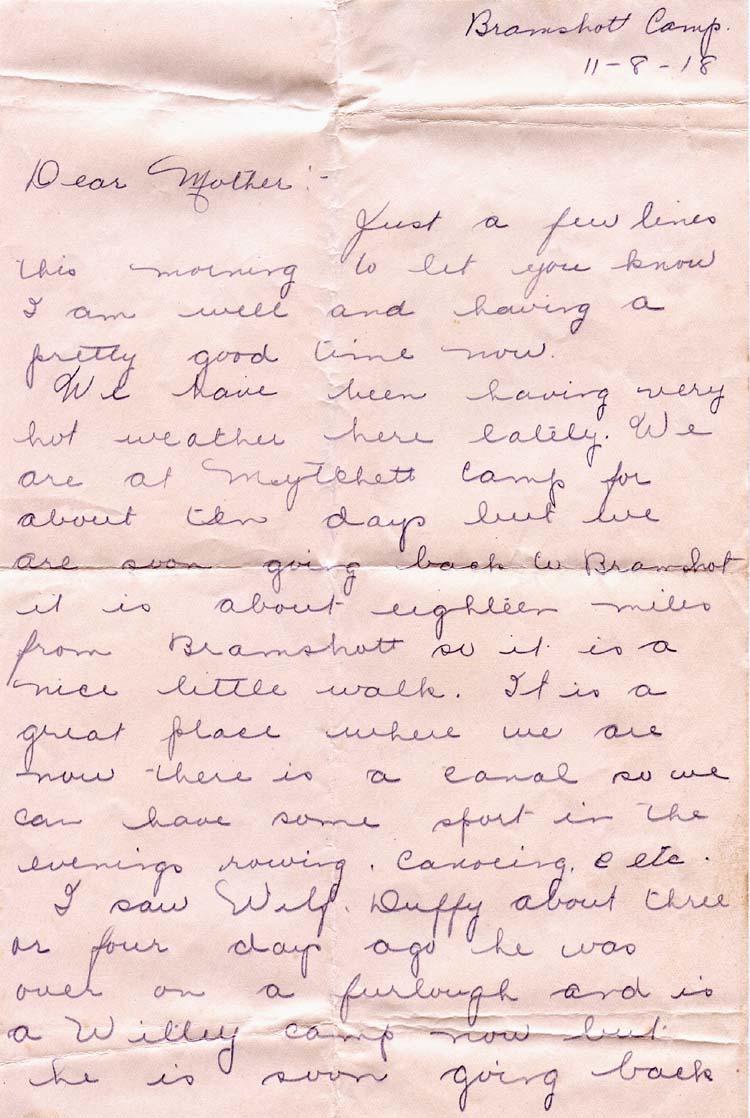 Bramshott Camp.
11-8-18
Dear Mother:-
Just a few lines
this morning to let you know
I am well and having a
pretty good time now.
We have been having very
hot weather here lately. We
are at Mytchett Camp for
about ten days but we
are soon going back to Bramshot
it is about eighteen miles
from Bramshott so it is a
nice little walk. It is a
great place where we are
now there is a canal so we
can have some sport in the
evenings rowing. Canoeing. e etc.
I saw Wilf. Duffy about three
or four days ago he was
over on a furlough and is
a Witley camp now but
he is soon going back